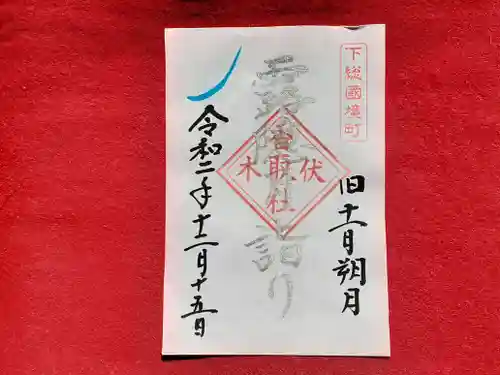 下総國境町
旧十一月朔月
詣り
伏木
香取社
令和二年十二月十五日